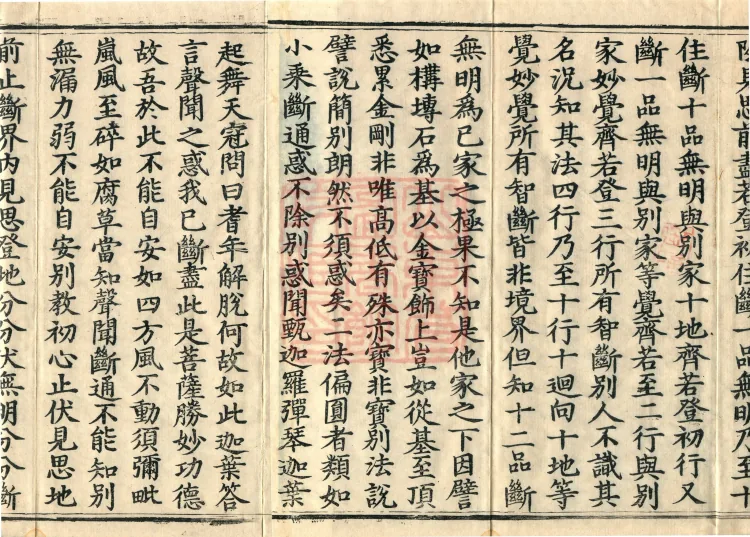 見思前盡若登初住斷一品無明乃至十
住斷十品無明與別家十地齊若登初行又
斷一品無明與別家等覺齊若至二行與別
家妙覺齊若登三行所有智斷別人不識其
名況知其法四行乃至十行十迴向十地等
覺妙覺所有智斷皆非境界但知十二品斷
無明爲已家之極果不知是他家之下因譬
如構塼石爲基以金寶飾上豈如從基至頂
悉累金剛非唯高低有殊亦寶非寶別法說
譬說簡別朗然不須惑矣二法偏圓者類如
小乘斷通惑不除別惑聞甄迦羅彈琴迦葉
起舞天冠問曰耆年解脫何故如此迦葉答
言聲聞之惑我已斷盡此是菩薩勝妙功德
故吾於此不能自安如四方風不動須彌毗
嵐風至碎如腐草當知聲聞斷通不能知別
無漏力弱不能自安別教初心止伏見思地
前止斷界內見思登地分分伏無明分分斷